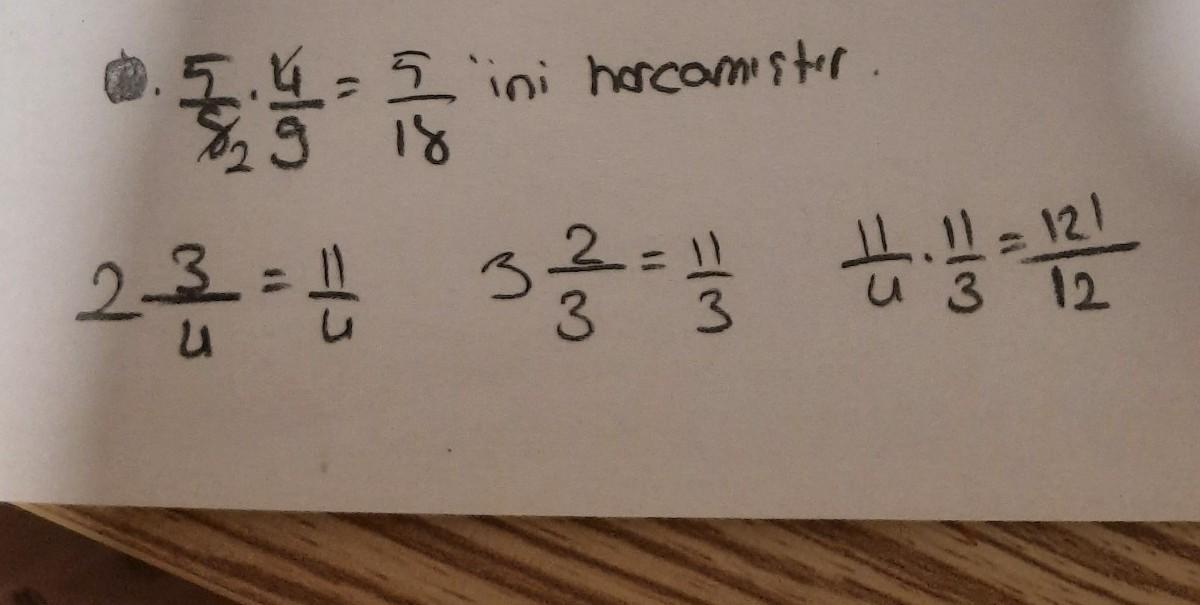 . 5/8 2 . 4/9 = 5/18 'ini harcamıştır.
2 3/4 = 11/4 3 2/3 = 11/3 11/4 . 11/3 = 121/12